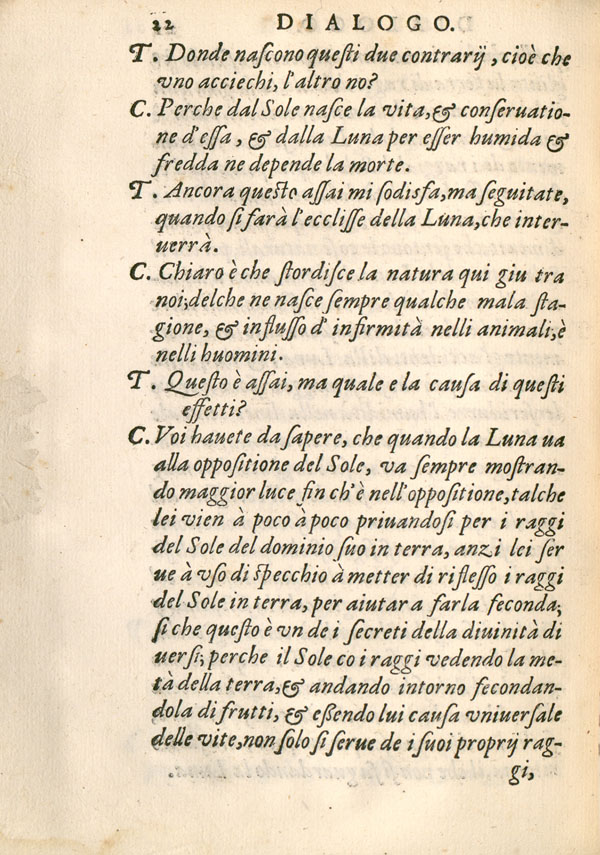 22 DIALOGO.
T. Donde naſcono queſti due contrarij, cioè che
vno acciechi, l'altro no?
C. Perche dal Sole naſce la vita, & conſeruatio-
ne d'eſſa, & dalla Luna per eſſer humida &
fredda ne depende la morte.
T. Ancora queſto aſſai mi ſodisfa, ma ſeguitate,
quando ſi farà l'eccliſſe della Luna, che inter-
uerrà.
C. Chiaro è che ſtordiſce la natura qui giu tra
noi; delche ne naſce ſempre qualche mala ſta-
gione, & influſſo d'infirmità nelli animali, è
nelli huomini.
T. Queſto è aſſai, ma quale e la cauſa di queſti
effetti?
C. Voi hauete da ſapere, che quando la Luna ua
alla oppoſitione del Sole, va ſempre moſtran-
do maggior luce fin ch'è nell'oppoſitione, talche
lei vien à poco à poco priuandoſi per i raggi
del Sole del dominio ſuo in terra, anzi lei ſer
ue à vſo di ſpecchio à metter di rifleſſo i raggi
del Sole in terra, per aiutar a farla feconda;
ſi che queſto è vn de i ſecreti della diuinità di
uerſi; perche il Sole co i raggi vedendo la me-
tà della terra, & andando intorno fecondan-
dola di frutti, & eßendo lui cauſa vniuerſale
delle vite, non ſolo ſi ſerue de i ſuoi proprij rag-
gi,